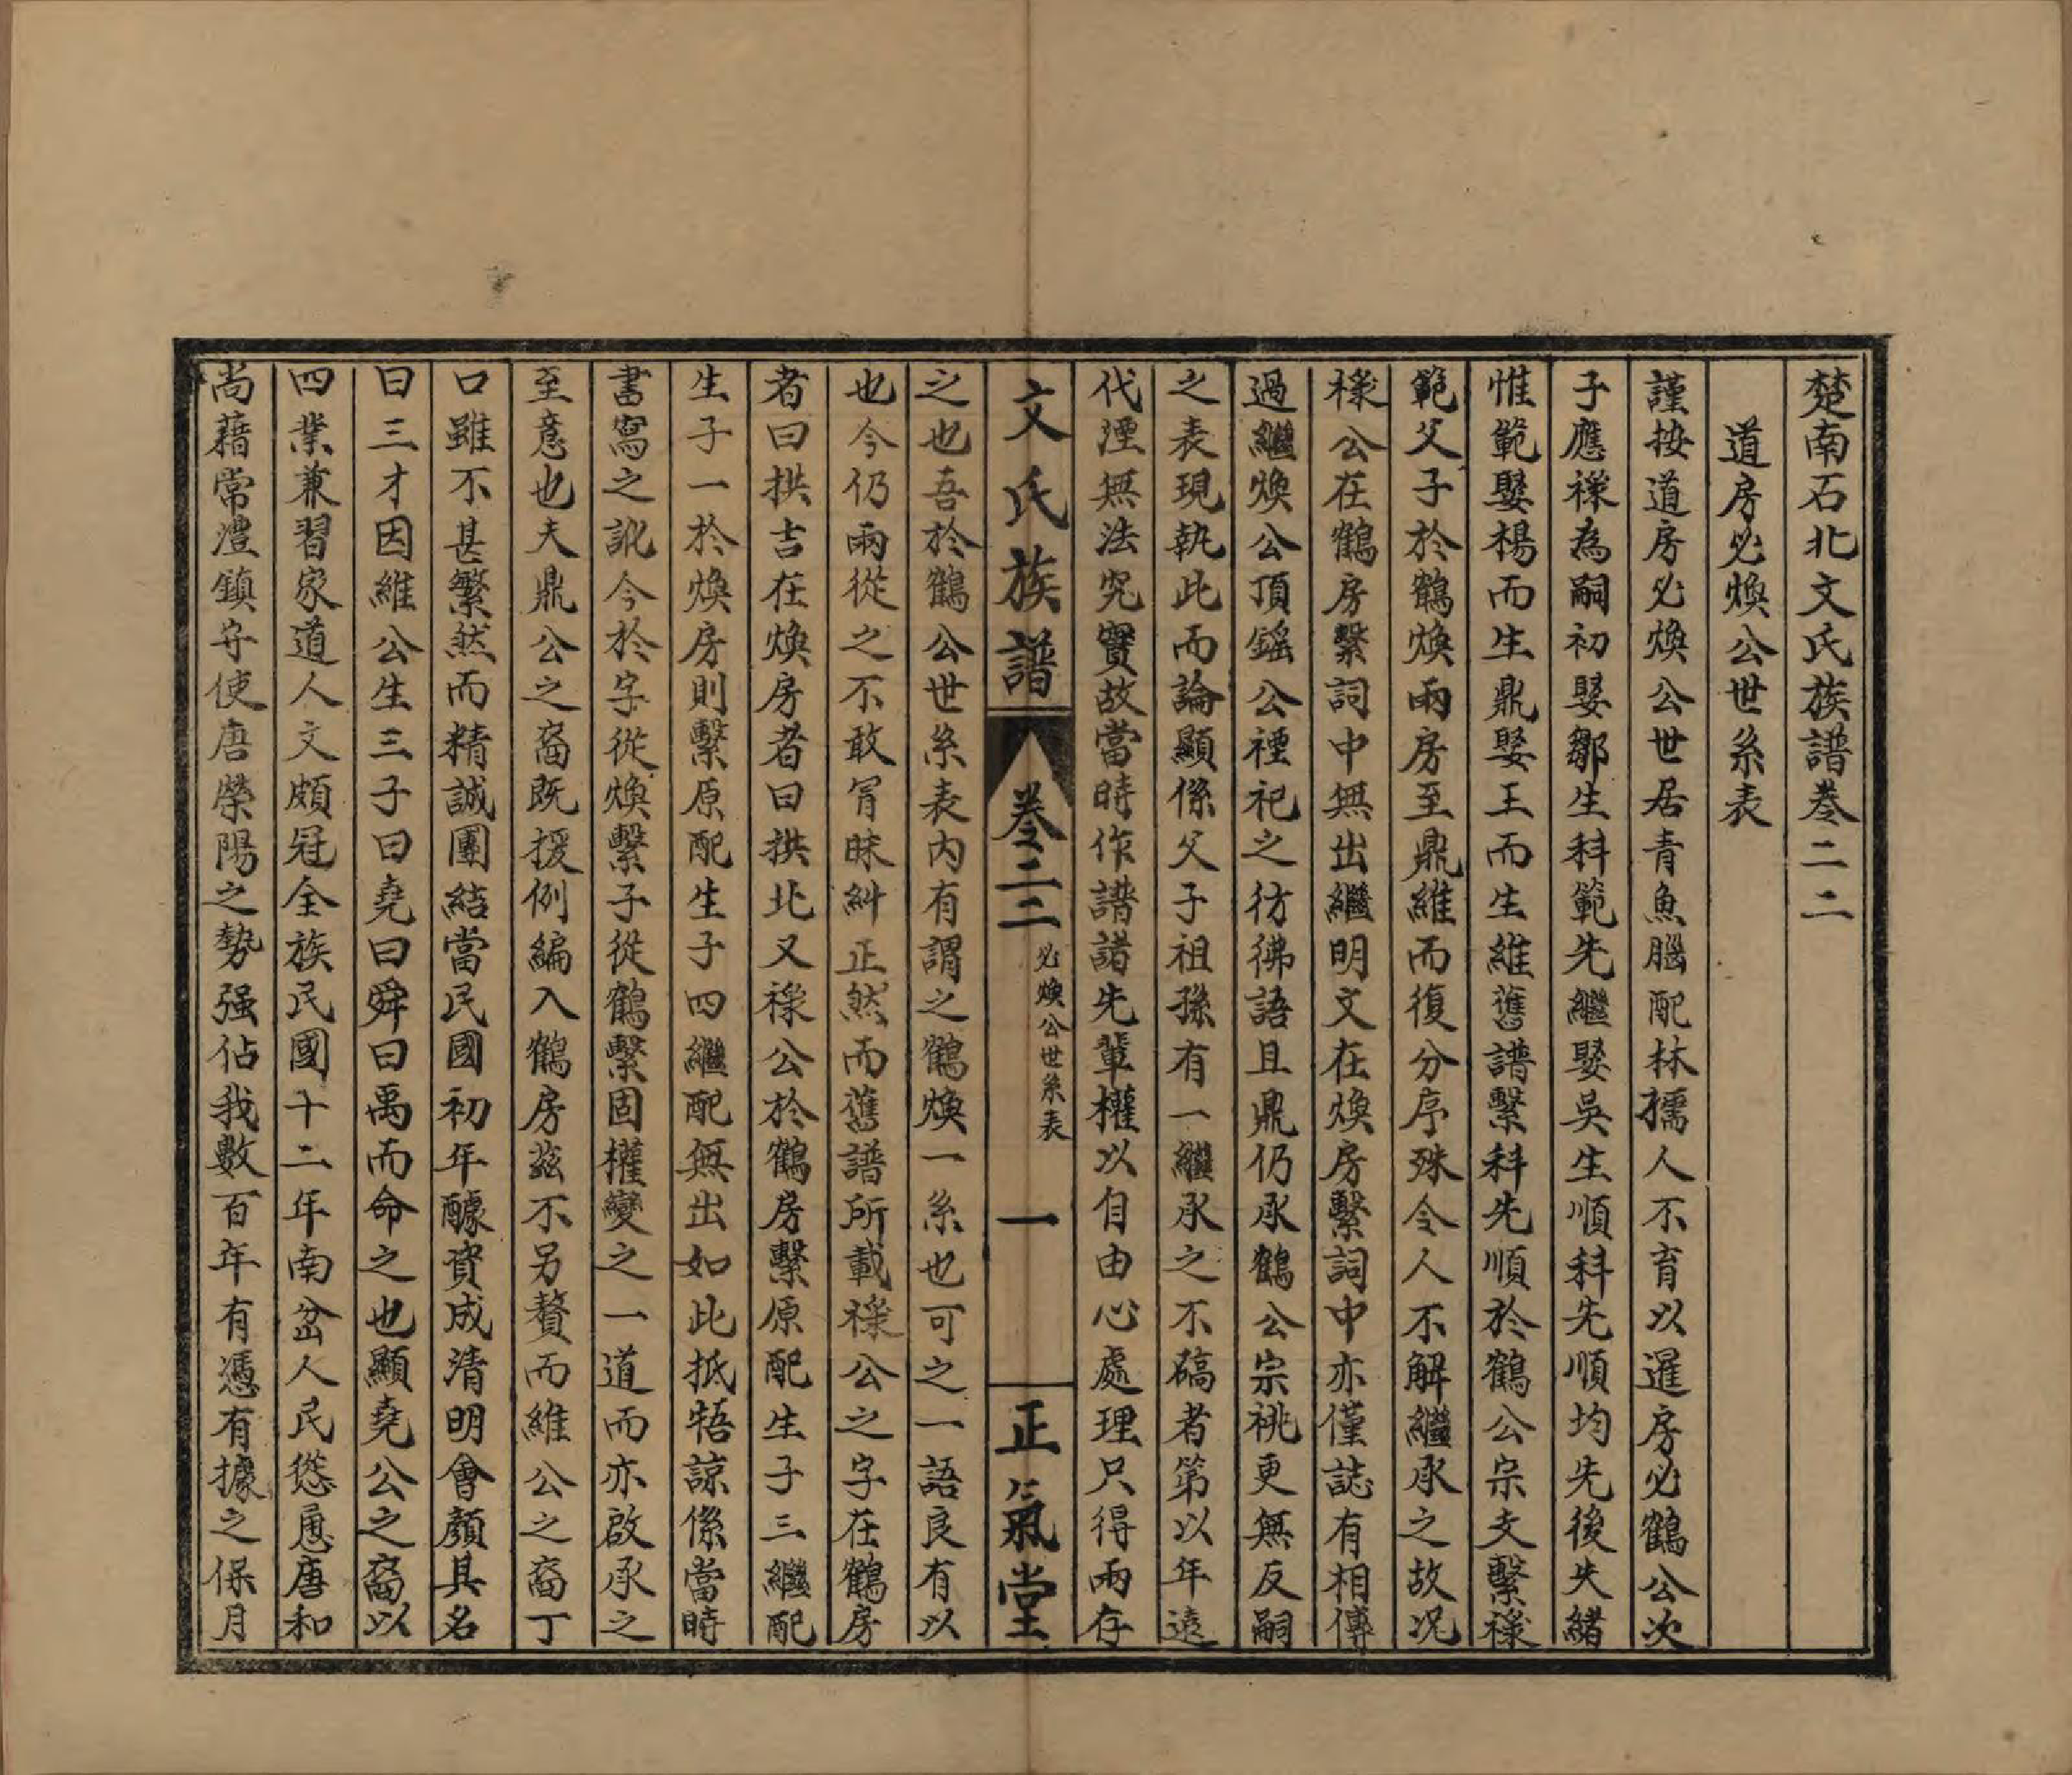 楚南石北文氏族譜卷二二
道房必煥公世系表
謹按道房必煥公世居青魚腦配林孺人不育以暹房必鶴公次
子應祿為嗣初娶鄒生科範先繼娶吳生順科先順均先後失緒
惟範娶楊而生鼎娶王而生維舊譜繫科先順於鶴公宗支繫祿
範父子於鶴煥兩房至鼎維而復分序殊令人不解繼承之故況
祿公在鶴房繫詞中無出繼明文在煥房繫詞中亦僅誌有相傳
過繼煥公頂鎐公禋祀之彷彿語且鼎仍承鶴公宗祧更無反嗣
之表現執此而論顯係父子祖孫有一繼承之不碻者第以年遠
代湮無法究實故當時作譜諸先輩權以自由心處理只得兩存
文氏族譜
卷二二
必煥公世系表
一
正氣堂
之也吾於鶴公世系表內有謂之鶴煥一系也可之一語良有以
也今仍兩從之不敢冐昧糾正然而舊譜所載祿公之字在鶴房
者曰拱吉在煥房者曰拱北又祿公於鶴房繫原配生子三繼配
生子一於煥房則繫原配生子四繼配無出如此抵牾諒係當時
書寫之訛今於字從煥繫子從鶴繫固權變之一道而亦啟承之
至意也夫鼎公之裔既援例編入鶴房茲不另贅而維公之裔丁
口雖不甚繁然而精誠團結當民國初年醵資成清明會顏其名
曰三才因維公生三子曰堯曰舜曰禹而命之也顯堯公之裔以
四業兼習家道人文頗冠全族民國十二年南岔人民慫恿唐和
尚藉常澧鎮守使唐榮陽之勢强佔我數百年有憑有據之保月